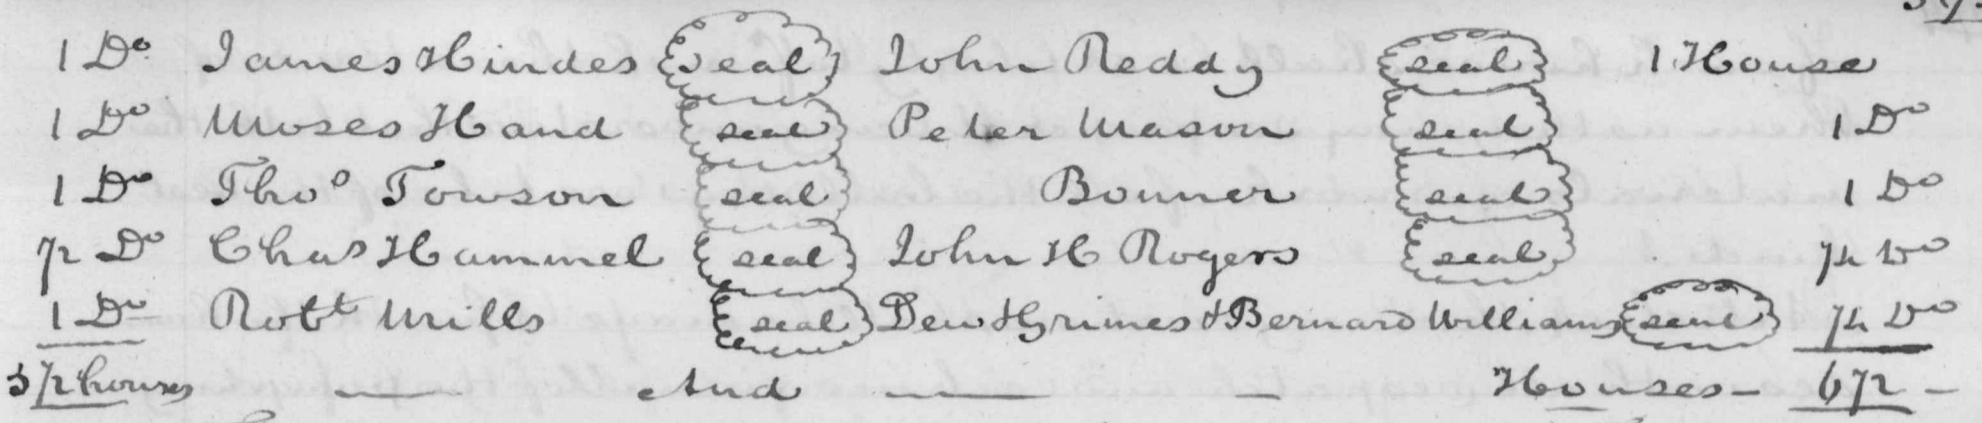 1 Do James Hindes seal John Reddy seal 1 House
1 Do Moses Hand seal Peter Mason seal 1 Do
1 Do Thos Towson seal Bonner seal 1 Do
1/2 Do Chas Hammel seal John H Rogers seal 1/4 Do
1 Do Robt Mills seal Dew & Grimes & Bernard Williams seal 1/4 Do
5 1/2 houses — And — — Houses - 6 1/2 -